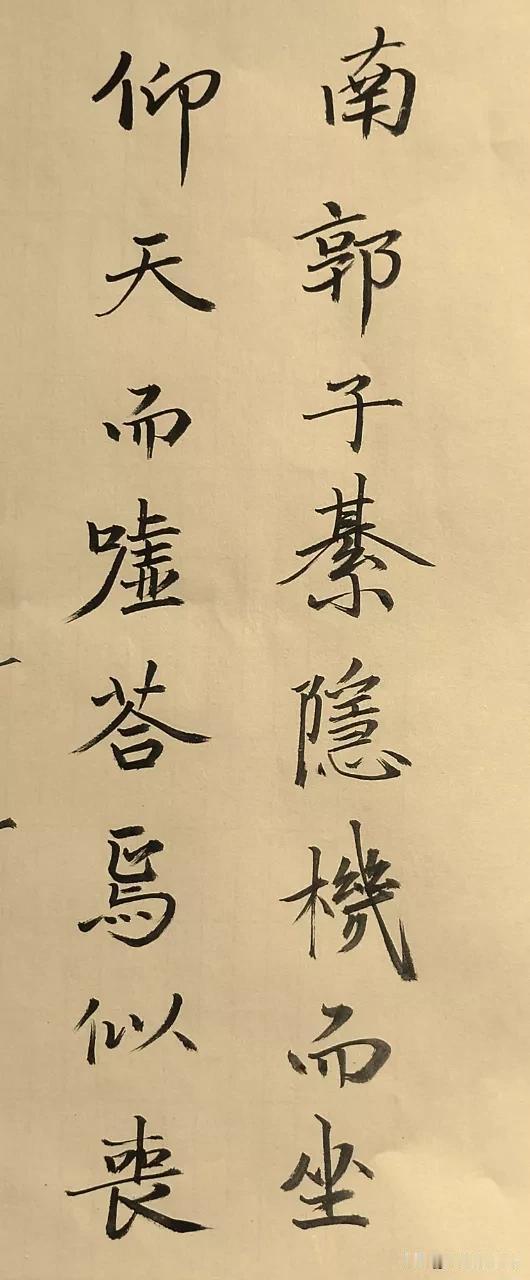 南郭子綦隱機而坐
仰天而嘘荅焉似喪